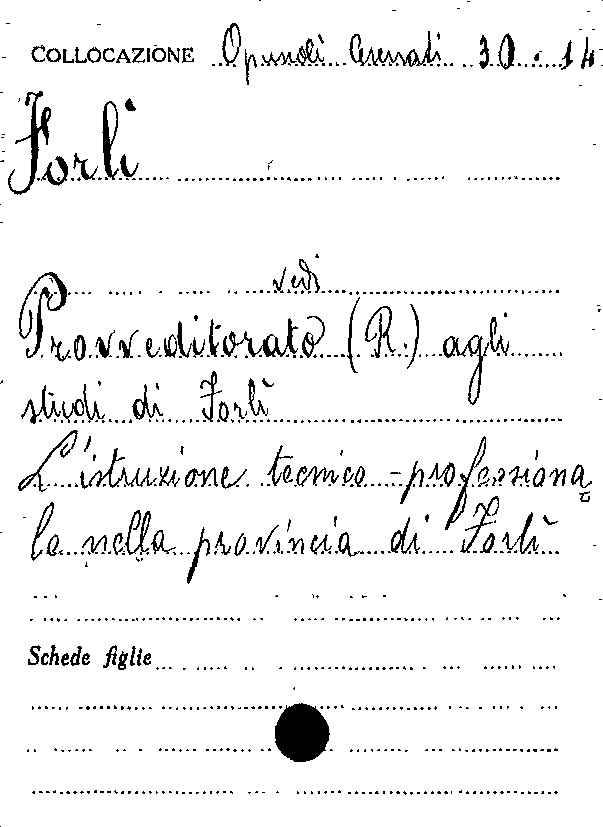 COLLOCAZIONE Opuscoli Cesenati 30.14
Forlì
vedi
Provveditorato (R.) agli
studi di Forlì
L'istruzione tecnico-professiona
le nella provincia di Forlì
Schede figlie